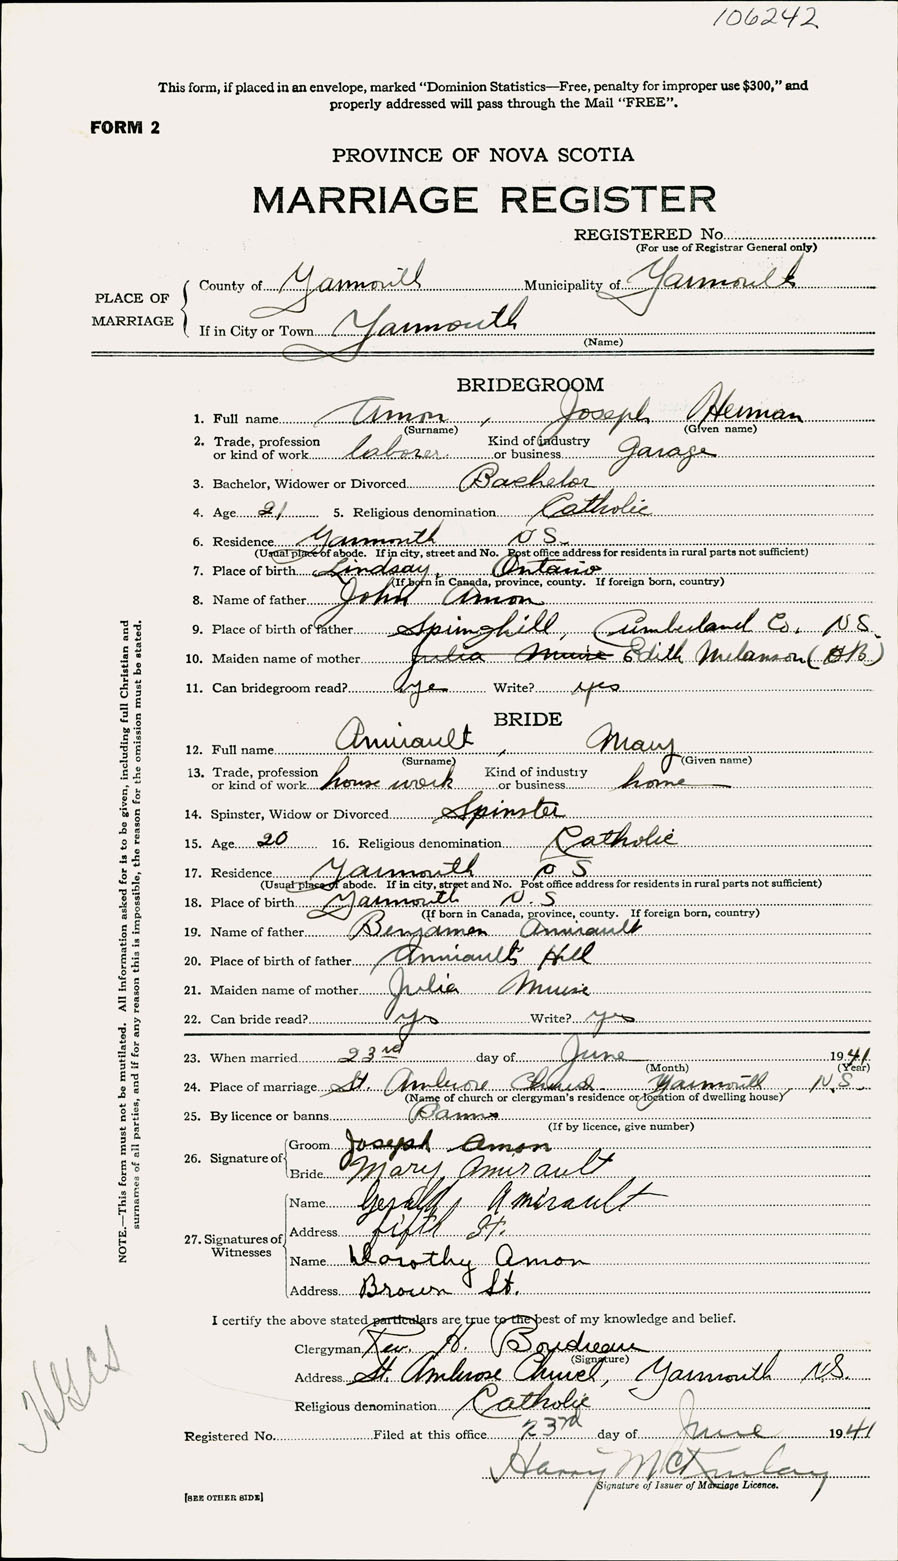 106242
This form, if placed in an envelope, marked "Dominion Statistics—Free, penalty for improper use $300," and
properly addressed will pass through the Mail "FREE".
FORM 2
PROVINCE OF NOVA SCOTIA
MARRIAGE REGISTER
REGISTERED No.
(For use of Registrar General only)
PLACE OF MARRIAGE
County of Yarmouth Municipality of Yarmouth
If in City or Town Yarmouth
(Name)
BRIDEGROOM
1. Full name Amon, Joseph Herman
(Surname) (Given name)
2. Trade, profession or kind of work laborer Kind of industry or business garage
3. Bachelor, Widower or Divorced Bachelor
4. Age 21 5. Religious denomination Catholic
6. Residence Yarmouth N.S.
(Usual place of abode. If in city, street and No. Post office address for residents in rural parts not sufficient)
7. Place of birth Lindsay, Ontario
(If born in Canada, province, county. If foreign born, country)
8. Name of father John Amon
9. Place of birth of father Springhill, Cumberland Co. N.S.
10. Maiden name of mother Julia Muise Edith Melanson
11. Can bridegroom read? Write? yes
BRIDE
12. Full name Amirault, Mary
(Surname) (Given name)
13. Trade, profession or kind of work house work Kind of industry or business home
14. Spinster, Widow or Divorced Spinster
15. Age 20 16. Religious denomination Catholic
17. Residence Yarmouth N S
(Usual place of abode. If in city, street and No. Post office address for residents in rural parts not sufficient)
18. Place of birth Yarmouth N.S
(If born in Canada, province, county. If foreign born, country)
19. Name of father Benjamen Amirault
20. Place of birth of father Amiraults Hill
21. Maiden name of mother Julia Muise
22. Can bride read? yes Write? yes
23. When married 23rd day of June 1941
(Month) (Year)
24. Place of marriage St. Ambrose Church Yarmouth, N.S.
(Name of church or clergyman's residence or location of dwelling house)
25. By licence or banns Banns
(If by licence, give number)
26. Signature of
Groom Joseph Amon
Bride Mary Amirault
27. Signatures of Witnesses
Name Gerald Amirault
Address fifth St.
Name Dorothy Amon
Address Brown St.
I certify the above stated particulars are true to the best of my knowledge and belief.
Clergyman Rev. H. Boudreau
(Signature)
Address St. Ambrose Church, Yarmouth N.S.
Religious denomination Catholic
Registered No. Filed at this office 23rd day of June 1941
Harry McKinlay
Signature of Issuer of Marriage Licence.
[SEE OTHER SIDE]
NOTE.—This form must not be mutilated. All information asked for is to be given, including full Christian and
surnames of all parties, and if for any reason this is impossible, the reason for the omission must be stated.